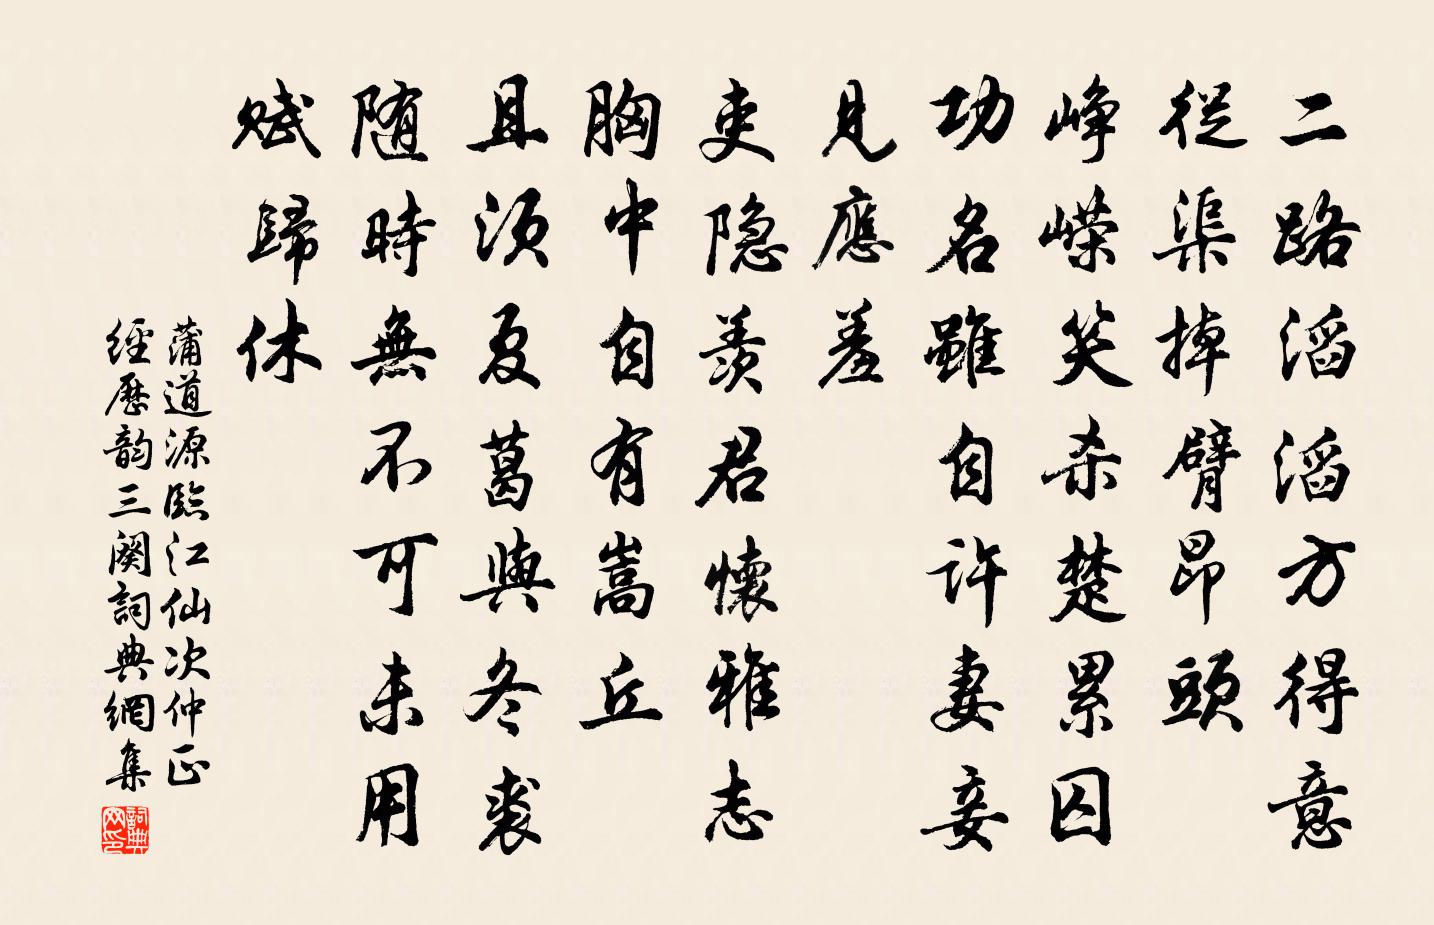 二路滔滔方得意
從渠掉臂昂頭
峥嵘笑杀楚累囚
功名雖自许妻妾
見應羞
吏隐羨君懷雅志
胸中自有嵩丘
且须夏葛與冬裘
随時無不可未用
赋歸休
蒲道源臨江仙次仲正
經歷韵三阕詞典網集
詞典网印